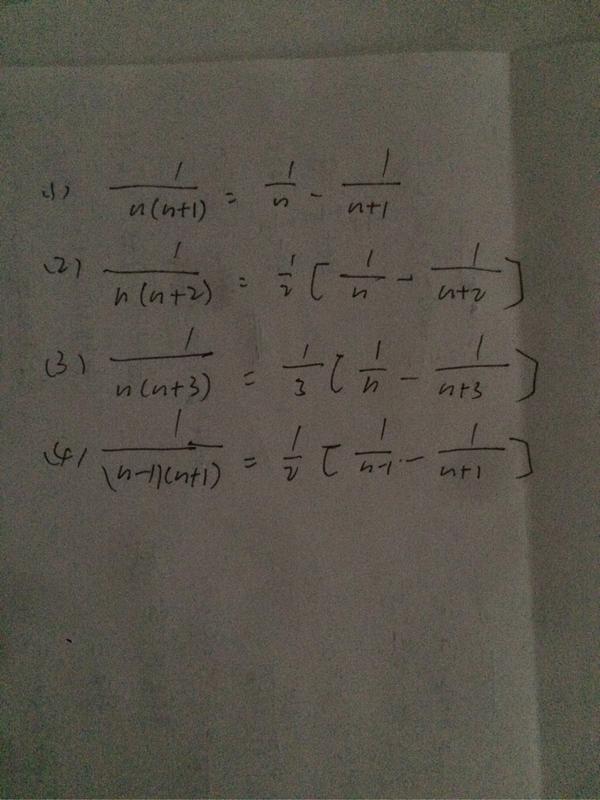 (1) \frac{1}{n(n+1)} = \frac{1}{n} - \frac{1}{n+1}
(2) \frac{1}{n(n+2)} = \frac{1}{2} [ \frac{1}{n} - \frac{1}{n+2} ]
(3) \frac{1}{n(n+3)} = \frac{1}{3} [ \frac{1}{n} - \frac{1}{n+3} ]
(4) \frac{1}{(n-1)(n+1)} = \frac{1}{2} [ \frac{1}{n-1} - \frac{1}{n+1} ]